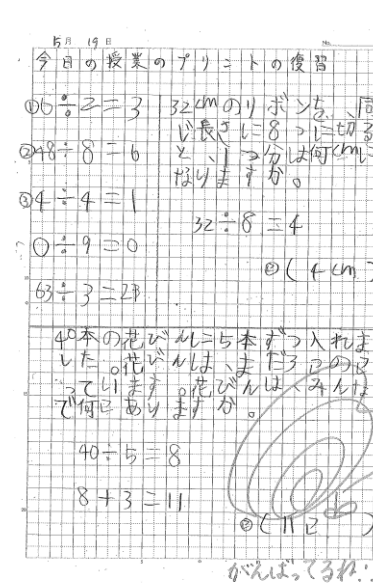 5月 19日
No.
今日の授業のプリントの復習
①6÷2=3
②48÷8=6
③4÷4=1
0÷9=0
63÷3=23
32cmのリボンを、同
じ長さに8つに切る
と、1つ分は何cmに
なりますか。
32÷8=4
(4cm)
40本の花びんに5本ずつ入れま
した。花びんは、まだ3このこ
っています。花びんは、みんな
で何こありますか。
40÷5=8
8+3=11
(11こ)
がんばってるね!